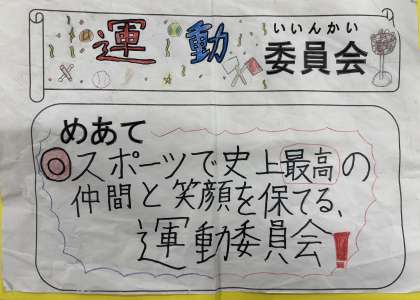 いいんかい
運動委員会
めあて
◎スポーツで史上最高の
仲間と笑顔を保てる、
運動委員会!